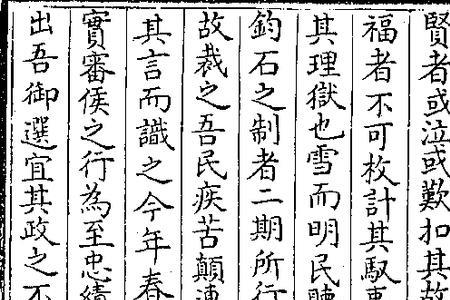 賢者或泣或歎扣其故
福者不可枚計其馭
其理獄也雪而明民
鈞石之制者二期所行
故裁之吾民疾苦顛連
其言而識之今年春
實審侯之行為至忠績
出吾御選宜其政之不